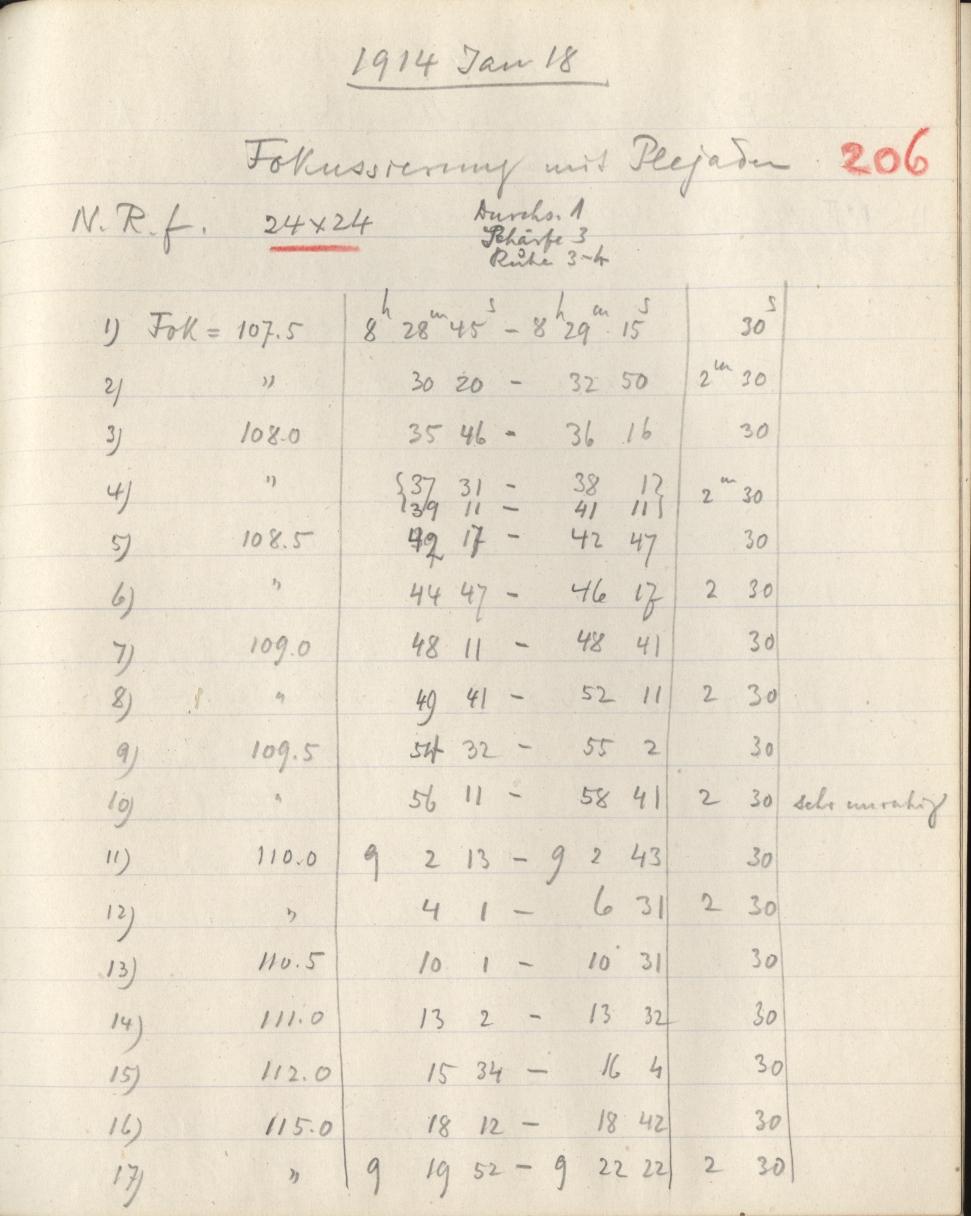 1914 Jan 18
Fokussierung mit Plejaden 206
N. R. f. 24×24 Durchs. 1
Schärfe 3
Ruhe 3-4
1) Fok = 107.5 8h 28m 45s - 8h 29m 15s 30s
2) " 30 20 - 32 50 2m 30
3) 108.0 35 46 - 36 16 30
4) " {37 31 - 38 1?
{39 11 - 41 11} 2m 30
5) 108.5 42 17 - 42 47 30
6) " 44 47 - 46 17 2 30
7) 109.0 48 11 - 48 41 30
8) " 49 41 - 52 11 2 30
9) 109.5 54 32 - 55 2 30
10) " 56 11 - 58 41 2 30 sehr unruhig
11) 110.0 9 2 13 - 9 2 43 30
12) " 4 1 - 6 31 2 30
13) 110.5 10 1 - 10 31 30
14) 111.0 13 2 - 13 32 30
15) 112.0 15 34 - 16 4 30
16) 115.0 18 12 - 18 42 30
17) " 9 19 52 - 9 22 22 2 30